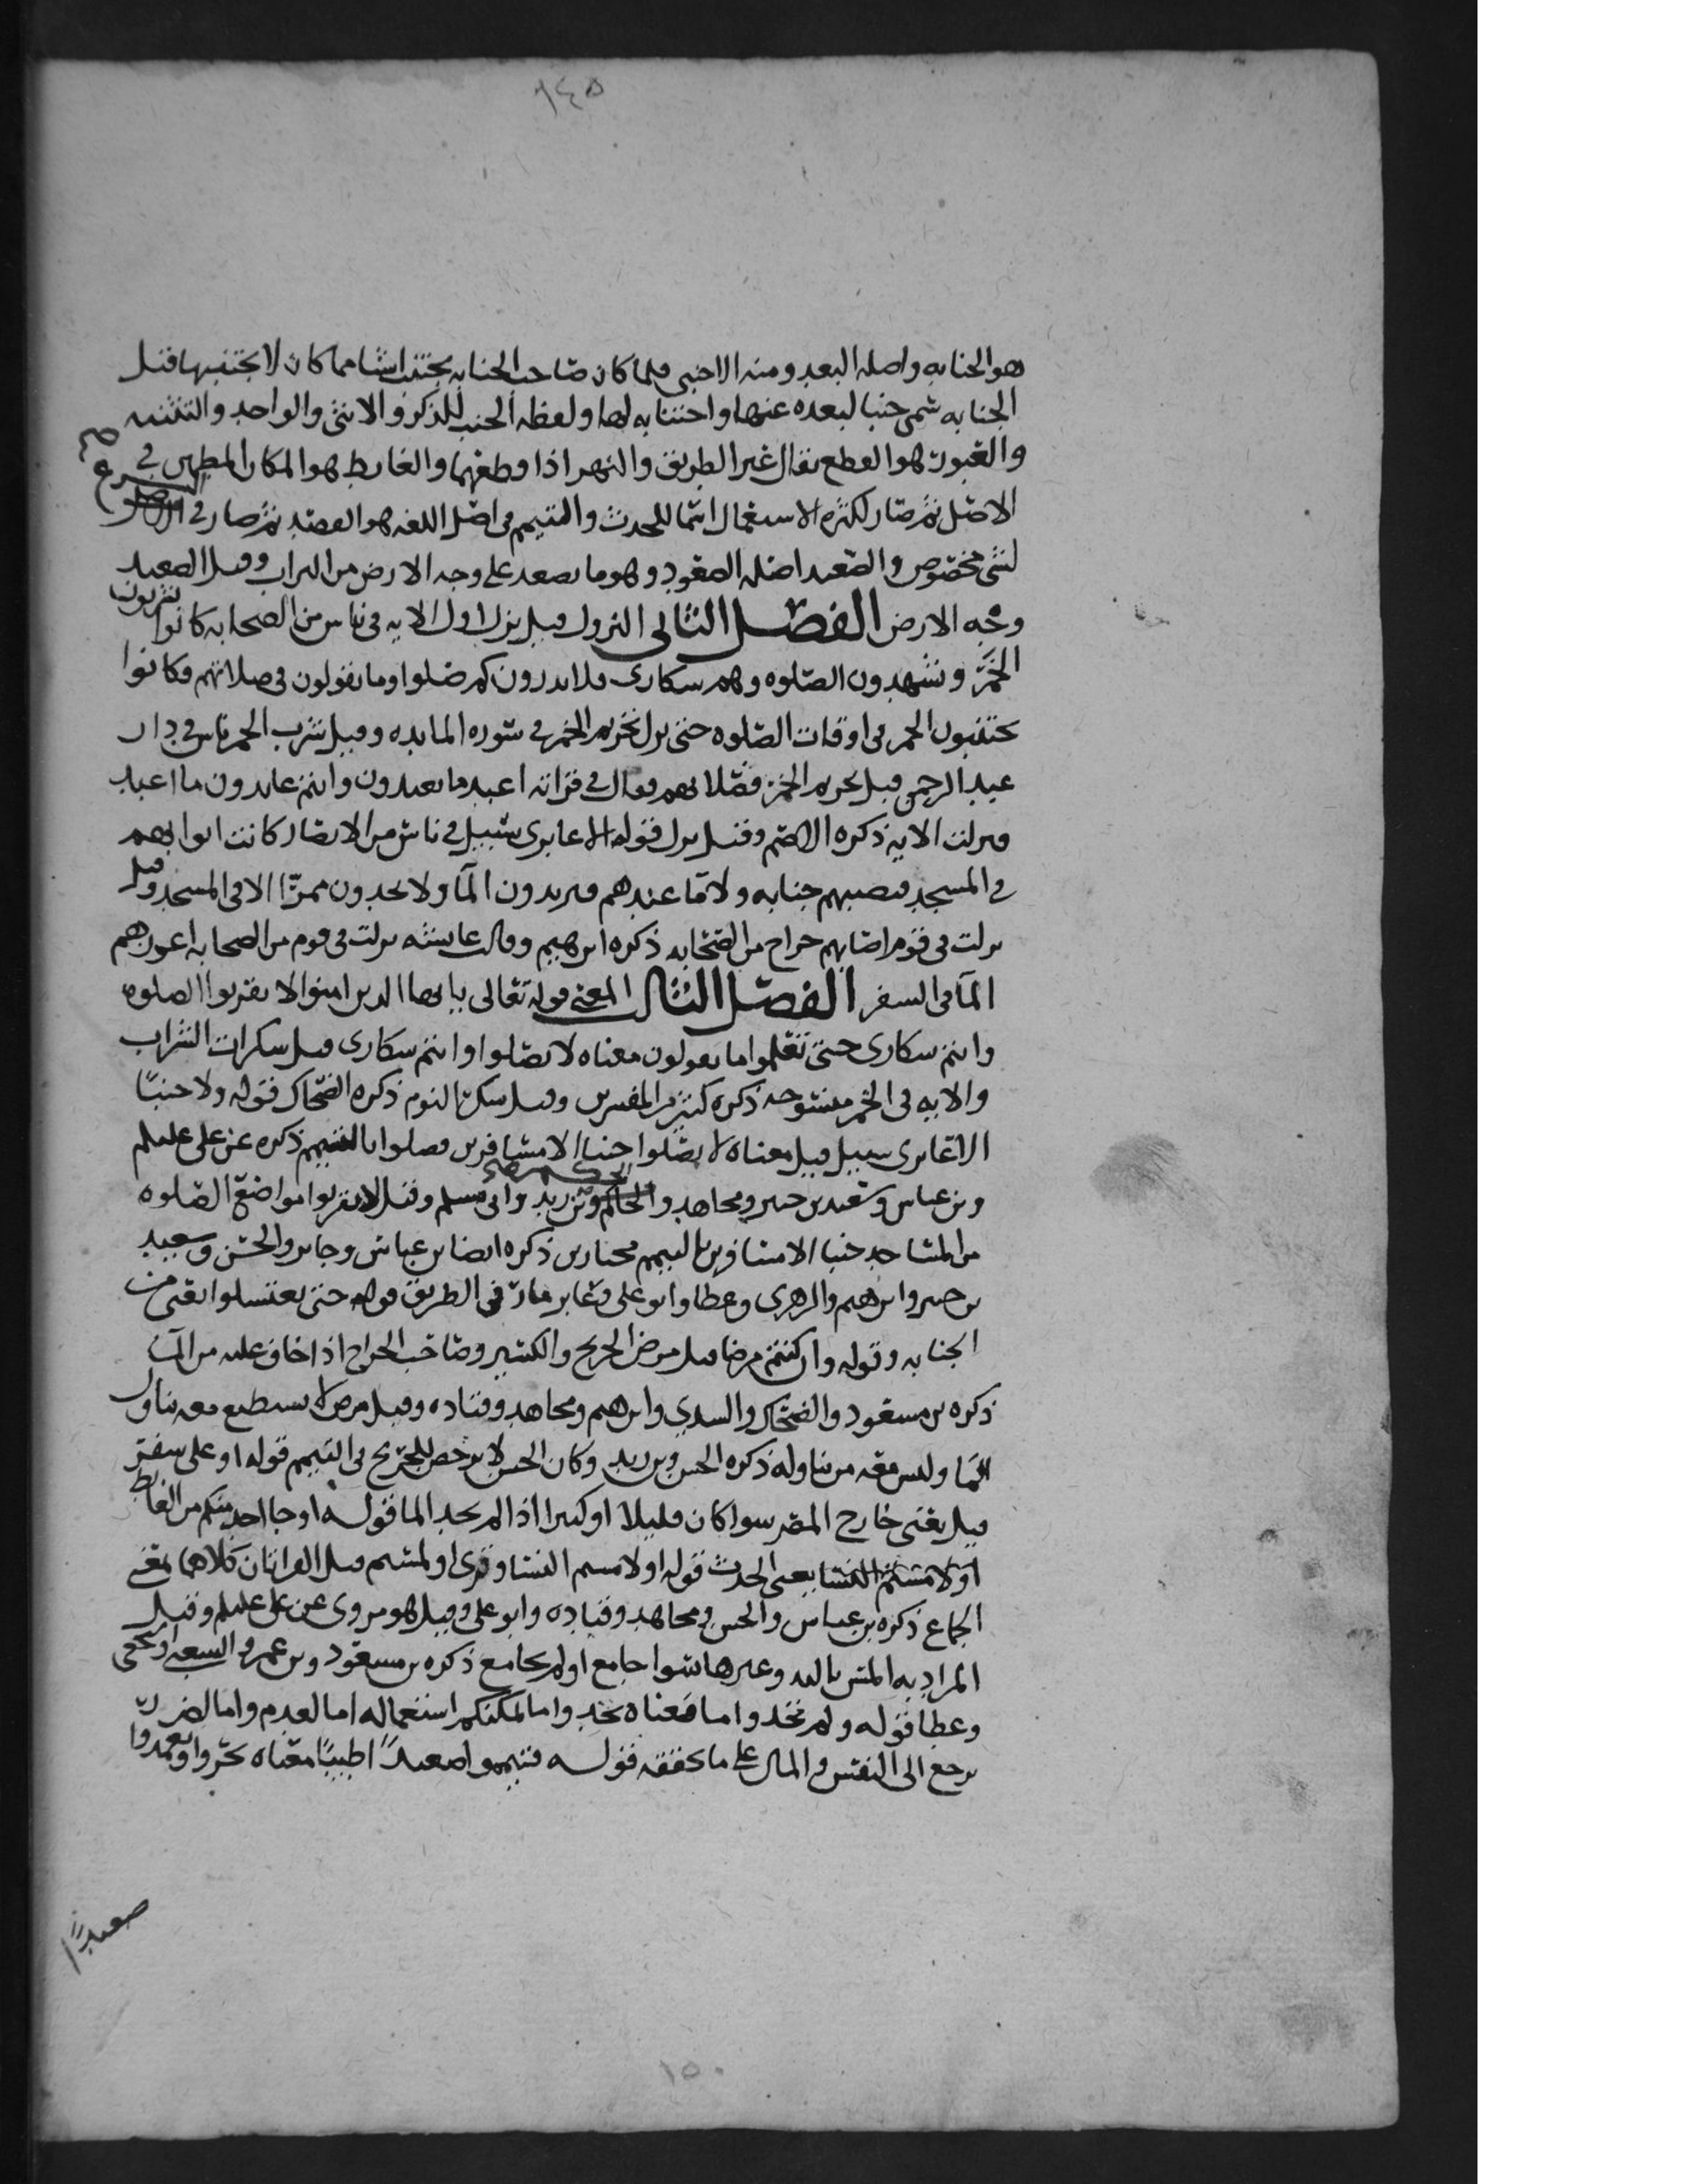 ١٤٥
هو الجنابه واصله البعد ومنه الاجنبى فلما كان صاحب الجنابه يجتنب اشيا مما كان لا يجتنبها قبل
الجنابه سمى جنبا لبعده عنها واجتنابه لها ولفظه الجنب للذكر والانثى والواحد والتثنيه
والعبور هو القطع يقال عبر الطريق والنهر اذا قطعهما والغايط هو المكان المطمين فى
الاصل ثم صار لكثره الاستعمال اسما للحدث والتيمم فى اصل اللغه هو القصد ثم صار فى الشرع
لشى مخصوص والصعيد اصله الصعود وهو ما يصعد على وجه الارض من التراب وقيل الصعيد
وجه الارض الفصل الثانى النزول قيل نزل اول الايه فى ناس من الصحابه كانوا يشربون
الخمر ويشهدون الصلوه وهم سكارى فلا يدرون كم صلوا وما يقولون فى صلاتهم فكانوا
يجتنبون الخمر فى اوقات الصلوه حتى نزل تحريم الخمر فى سوره المايده وقيل شرب الخمر ناس فى دار
عبد الرحمن قبل تحريم الخمر فصلا بهم فقال فى قراته اعبد ما تعبدون وانتم عابدون ما اعبد
فنزلت الايه ذكره الاصم وقيل نزل قوله الا عابرى سبيل فى ناس من الانصار كانت ابوابهم
فى المسجد فتصيبهم جنابه ولا ما عندهم فيريدون المآ ولا يجدون ممرّا الا فى المسجد وقيل
نزلت فى قوم اصابهم جراح من الصحابه ذكره ابرهيم وقالت عايشه نزلت فى قوم من الصحابه اعوزهم
المآ فى السفر الفصل الثالث المعنى قوله تعالى يا ايها الذين امنوا لا تقربوا الصلوه
وانتم سكارى حتى تعلموا ما تقولون معناه لا تصلوا وانتم سكارى قيل سكرات الشراب
والايه فى الخمر منسوخه ذكره كثير من المفسرين وقيل سكر النوم ذكره الضحاك قوله ولا جنبًا
الا عابرى سبيل قيل معناه لا تصلوا جنبا الا مسافرين فصلوا بالتيمم ذكره عن على عليلم
وبن عباس وسعيد بن جبير ومجاهد والحكم وبن زيد وابى مسلم وقيل لا تقربوا مواضع الصلوه
من المساجد جنبا الا مسافرين بالتيمم مجتازين ذكره ايضا بن عباس وجابر والحسن وسعيد
بن جبير وابرهيم والزهرى وعطا وابو على وعابر مار فى الطريق قوله حتى يغتسلوا يعنى من
الجنابه وقوله وان كنتم مرضا قيل مرض الجريح والكسير وصاحب الجراح اذا خاف عليه من المآ
ذكره بن مسعود والضحاك والسدى وابرهيم ومجاهد وقتاده وقيل مرض لا يستطيع معه تناول
المآ وليس معه من يناوله ذكره الحسن وبن زيد وكان الحسن لا يرخص للجريح فى التيمم قوله او على سفر
قيل يعنى خارج المصر سوا كان قليلا او كثيرا اذا لم يجد الما قوله او جا احد منكم من الغايط
او لامستم النسا يعنى الحدث قوله او لامستم النسا وقرى او لمستم قيل القراتان كلاهما بمعنى
الجماع ذكره بن عباس والحسن ومجاهد وقتاده وابو على وقيل هو مروى عن على عليلم وقيل
المراد به المس باليد وغيرها سوا جامع او لم يجامع ذكره بن مسعود وبن عمر والشعبى والنخعى
وعطا قوله ولم تجدوا ما معناه تجدوا ما يمكنكم استعماله اما لعدم واما لضرر
يرجع الى النفس والمال على ما نحققه قوله فتيمموا صعيدًا طيبًا معناه تحروا وتعمدوا
صعيدًا
١٥٠